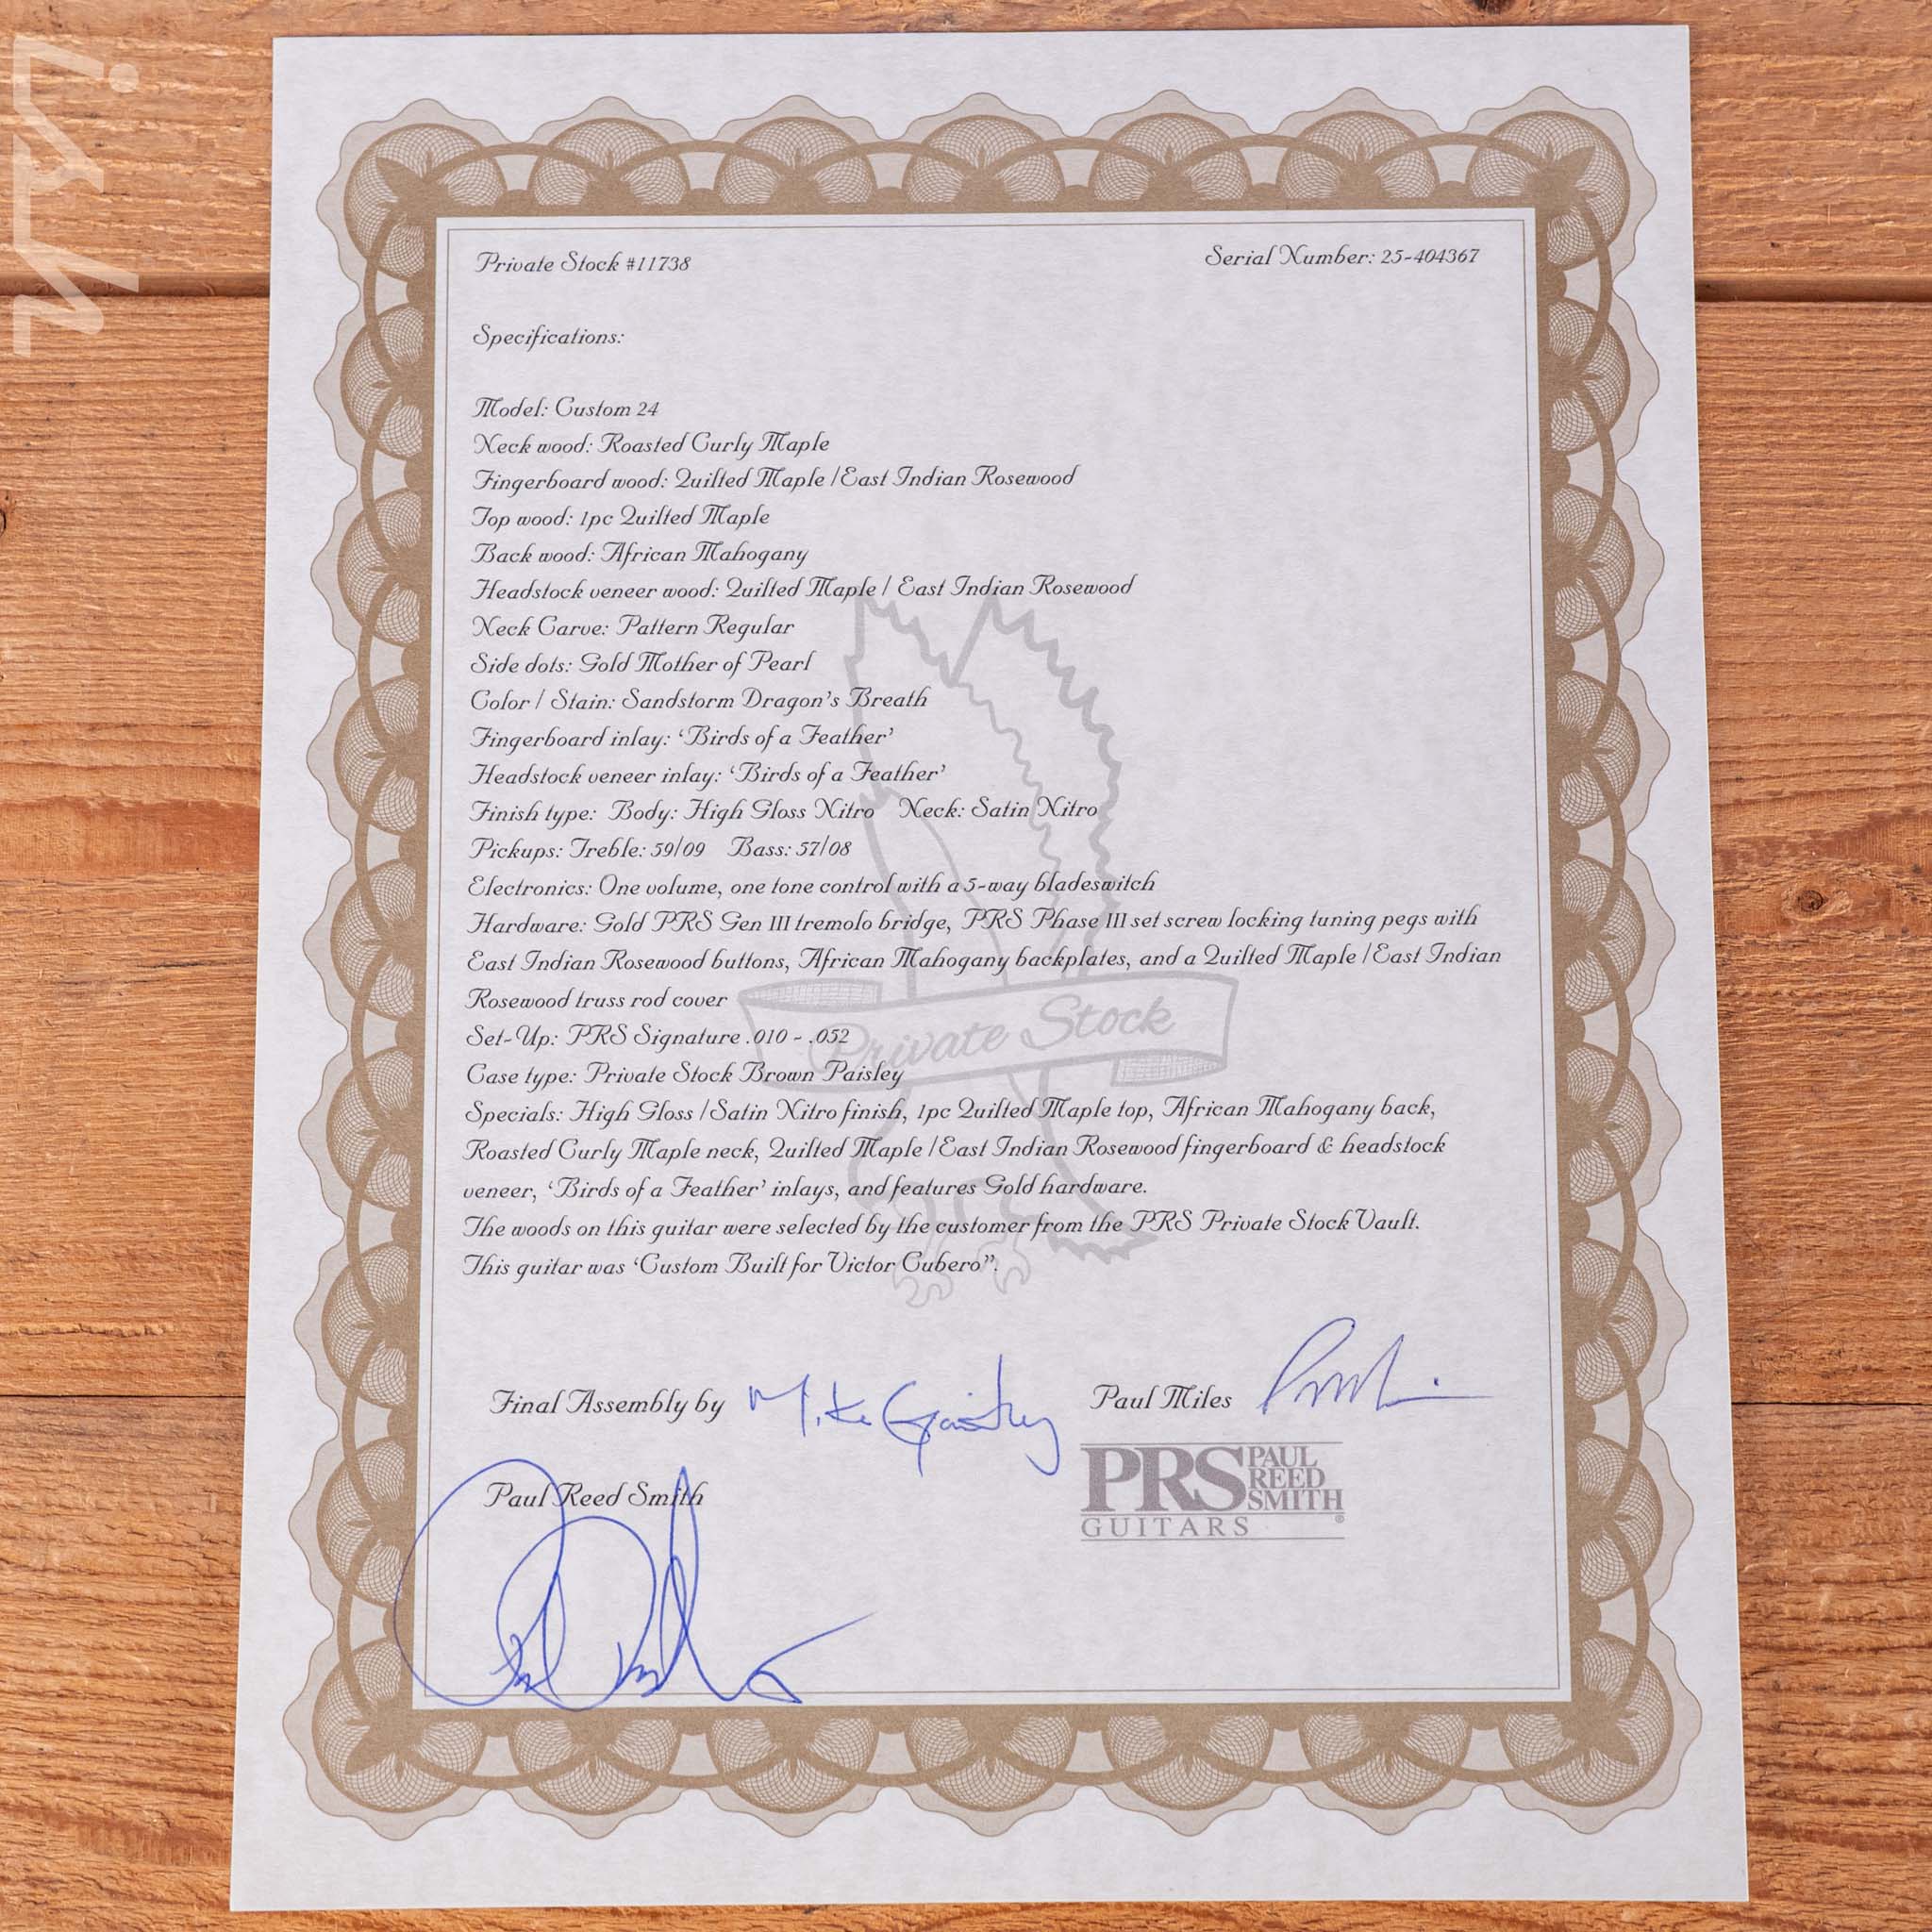 ish
Private Stock #11738
Serial Number: 25-404367
Specifications:
Model: Custom 24
Neck wood: Roasted Curly Maple
Fingerboard wood: Quilted Maple / East Indian Rosewood
Top wood: 1pc Quilted Maple
Back wood: African Mahogany
Headstock veneer wood: Quilted Maple / East Indian Rosewood
Neck Carve: Pattern Regular
Side dots: Gold Mother of Pearl
Color / Stain: Sandstorm Dragon's Breath
Fingerboard inlay: 'Birds of a Feather'
Headstock veneer inlay: 'Birds of a Feather'
Finish type: Body: High Gloss Nitro Neck: Satin Nitro
Pickups: Treble: 59/09 Bass: 57/08
Electronics: One volume, one tone control with a 5-way bladeswitch
Hardware: Gold PRS Gen III tremolo bridge, PRS Phase III set screw locking tuning pegs with
East Indian Rosewood buttons, African Mahogany backplates, and a Quilted Maple / East Indian
Rosewood truss rod cover
Private Stock
Set-Up: PRS Signature .010 - .052
Case type: Private Stock Brown Paisley
Specials: High Gloss / Satin Nitro finish, 1pc Quilted Maple top, African Mahogany back,
Roasted Curly Maple neck, Quilted Maple / East Indian Rosewood fingerboard & headstock
veneer, 'Birds of a Feather' inlays, and features Gold hardware.
The woods on this guitar were selected by the customer from the PRS Private Stock Vault.
This guitar was 'Custom Built for Victor Cubero".
Final Assembly by Mike
Paul Miles
Paul Reed Smith
PRS PAUL
REED
SMITH
GUITARS ®